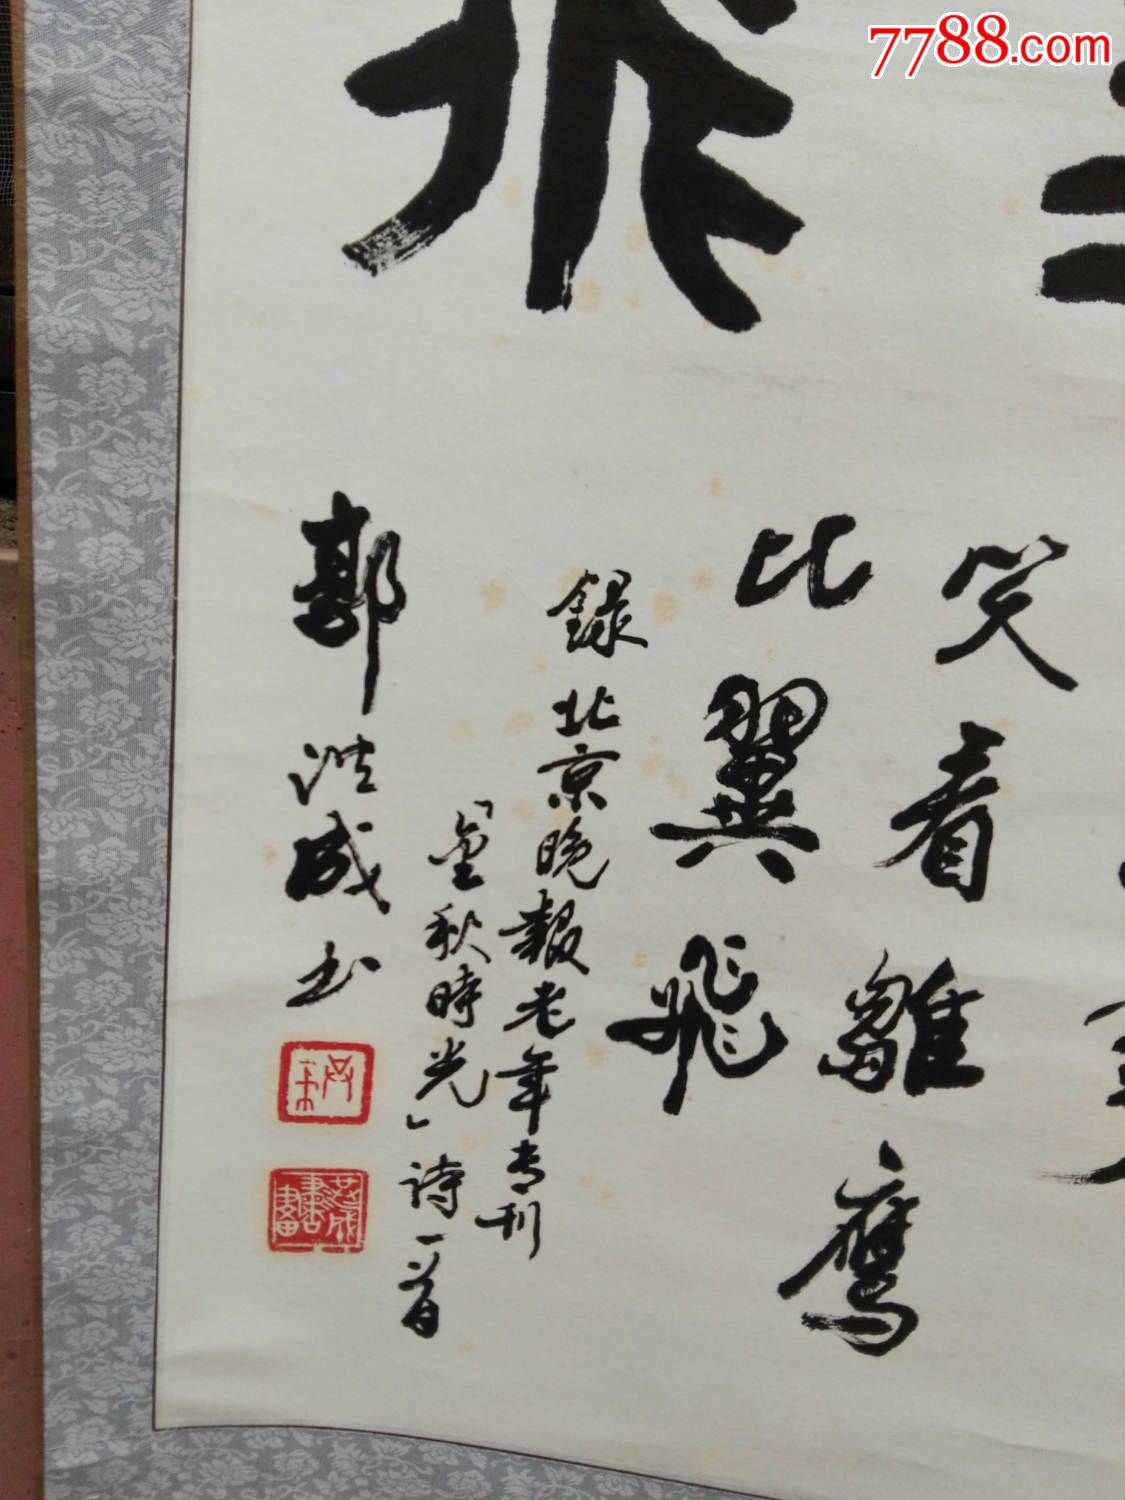 7788.com
笑看雛鷹
比翼飛
錄北京晚報老年专刊
「金秋時光」詩一首
郭洪成书